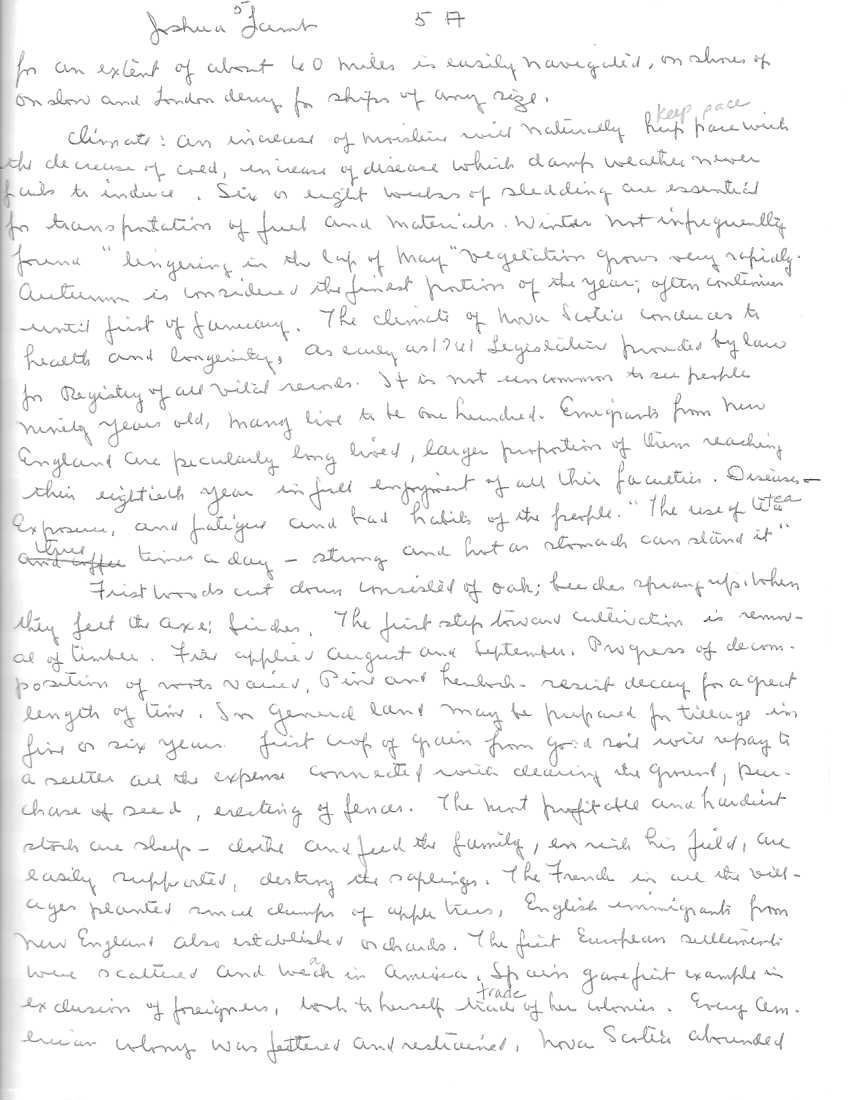 Joshua 5 5 A
for an extent of about 60 miles is easily navigated, on shores of
Onslow and Londonderry for ships of any size.
keep pace
Climate: An increase of moisture will naturally keep pace with
the decrease of cold, increase of disease which damp weather never
fails to induce. Six or eight weeks of sledding are essential
for transportation of fuel and materials. Winter not infrequently
found "lingering in the lap of May" Vegetation grows very rapidly.
Autumn is considered the finest portion of the year; often continues
until first of January. The climate of Nova Scotia conduces to
health and longevity, As early as 1761 Legislative provided by law
for Registry of all vital records. It is not uncommon to see people
ninety years old, many live to be one hundred. Emigrants from New
England are pecularly long lived, larger proportion of them reaching
their eightieth year in full enjoyment of all their faculties. Diseases -
Exposure, and fatigue and bad habits of the people. "The use of tea
three times a day - strong and hot as stomach can stand it"
First woods cut down consisted of oak; beeches sprang up, when
they felt the axe; birches. The first step toward cultivation is remov-
al of timber. Fire applied August and September. Progress of decom-
position of roots varied, Pine and hemlock - resist decay for a great
length of time. In General land may be prepared for tillage in
five or six years. First crop of grain from good soil will repay to
a settler all the expense connected with clearing the ground, pur-
chase of seed, erecting of fences. The most profitable and hardiest
stock are sheep - clothe and feed the family, enrich his field, are
easily supported, destroy the saplings. The French in all the vill-
ages planted small clumps of apple trees, English immigrants from
New England also established orchards. The first European settlements
were scattered and weak in America. Spain gave first example in
exclusion of foreigners, took to herself trade of her colonies. Every Am-
erican colony was fettered and restrained, Nova Scotia abounded